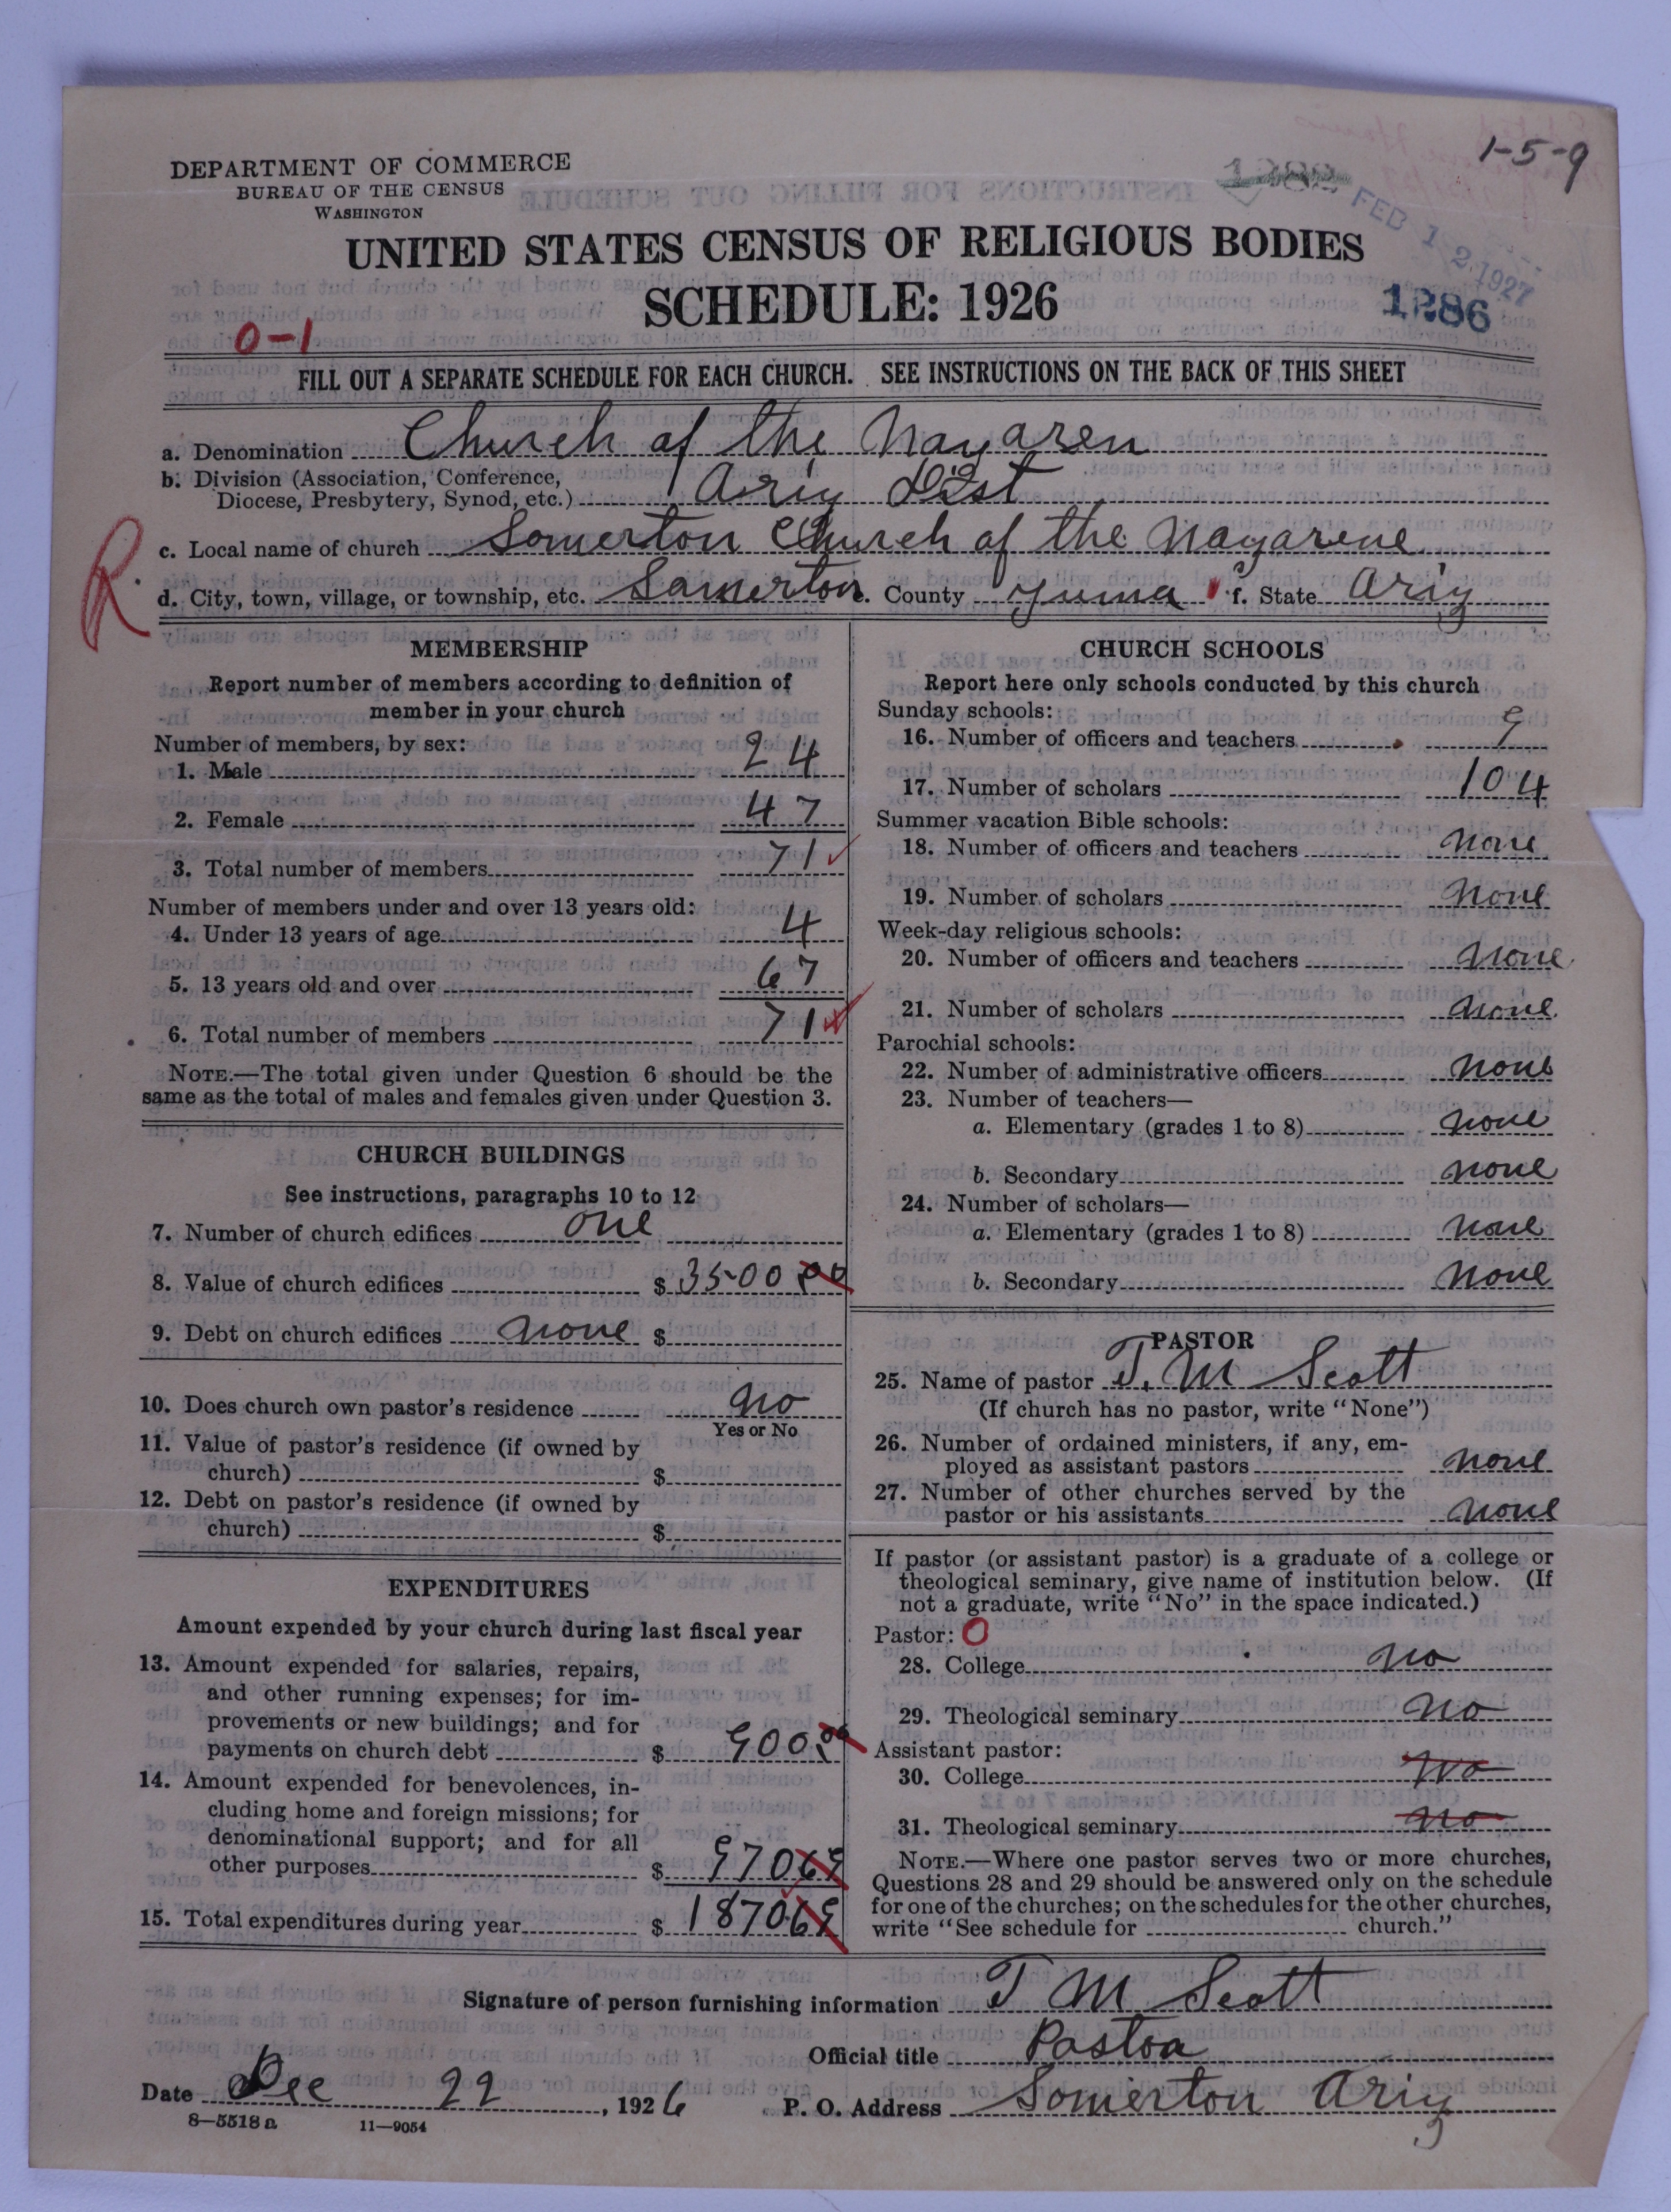 1-5-9
DEPARTMENT OF COMMERCE
BUREAU OF THE CENSUS
WASHINGTON
FEB 12 1927
UNITED STATES CENSUS OF RELIGIOUS BODIES
SCHEDULE: 1926
1286
0-1
FILL OUT A SEPARATE SCHEDULE FOR EACH CHURCH. SEE INSTRUCTIONS ON THE BACK OF THIS SHEET
a. Denomination Church of the Nazaren
b. Division (Association, Conference,
Diocese, Presbytery, Synod, etc.) Ariz Dist
R
c. Local name of church Somerton Church of the Nazarene
d. City, town, village, or township, etc. Somerton e. County Yuma f. State Ariz
MEMBERSHIP
Report number of members according to definition of
member in your church
Number of members, by sex:
1. Male 24
2. Female 47
3. Total number of members 71
Number of members under and over 13 years old:
4. Under 13 years of age 4
5. 13 years old and over 67
6. Total number of members 71
NOTE.—The total given under Question 6 should be the
same as the total of males and females given under Question 3.
CHURCH BUILDINGS
See instructions, paragraphs 10 to 12
7. Number of church edifices one
8. Value of church edifices $ 3500 00
9. Debt on church edifices none $
10. Does church own pastor's residence no
Yes or No
11. Value of pastor's residence (if owned by
church) $
12. Debt on pastor's residence (if owned by
church) $
EXPENDITURES
Amount expended by your church during last fiscal year
13. Amount expended for salaries, repairs,
and other running expenses; for im-
provements or new buildings; and for
payments on church debt $ 900.00
14. Amount expended for benevolences, in-
cluding home and foreign missions; for
denominational support; and for all
other purposes $ 970 69
15. Total expenditures during year $ 1870.69
CHURCH SCHOOLS
Report here only schools conducted by this church
Sunday schools:
16. Number of officers and teachers 9
17. Number of scholars 104
Summer vacation Bible schools:
18. Number of officers and teachers none
19. Number of scholars none
Week-day religious schools:
20. Number of officers and teachers none
21. Number of scholars none
Parochial schools:
22. Number of administrative officers none
23. Number of teachers—
a. Elementary (grades 1 to 8) none
b. Secondary none
24. Number of scholars—
a. Elementary (grades 1 to 8) none
b. Secondary none
PASTOR
25. Name of pastor T. M Scott
(If church has no pastor, write "None")
26. Number of ordained ministers, if any, em-
ployed as assistant pastors none
27. Number of other churches served by the
pastor or his assistants none
If pastor (or assistant pastor) is a graduate of a college or
theological seminary, give name of institution below. (If
not a graduate, write "No" in the space indicated.)
Pastor: 0
28. College no
29. Theological seminary no
Assistant pastor:
30. College no
31. Theological seminary no
NOTE.—Where one pastor serves two or more churches,
Questions 28 and 29 should be answered only on the schedule
for one of the churches; on the schedules for the other churches,
write "See schedule for church."
Signature of person furnishing information T M Scott
Official title Pastor
Date Dec 22, 1926 P. O. Address Somerton Ariz
8-5518a 11-9054
3